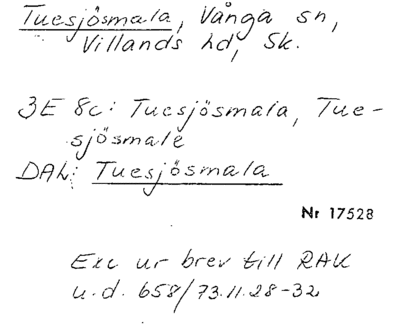 Tuesjösmala, Vånga sn,
Villands hd, Sk.
3E 8c: Tuesjösmala, Tue-
sjösmale
DAL: Tuesjösmala
Nr 17528
Exc ur brev till RAK
u.d. 658/73.11.28-32